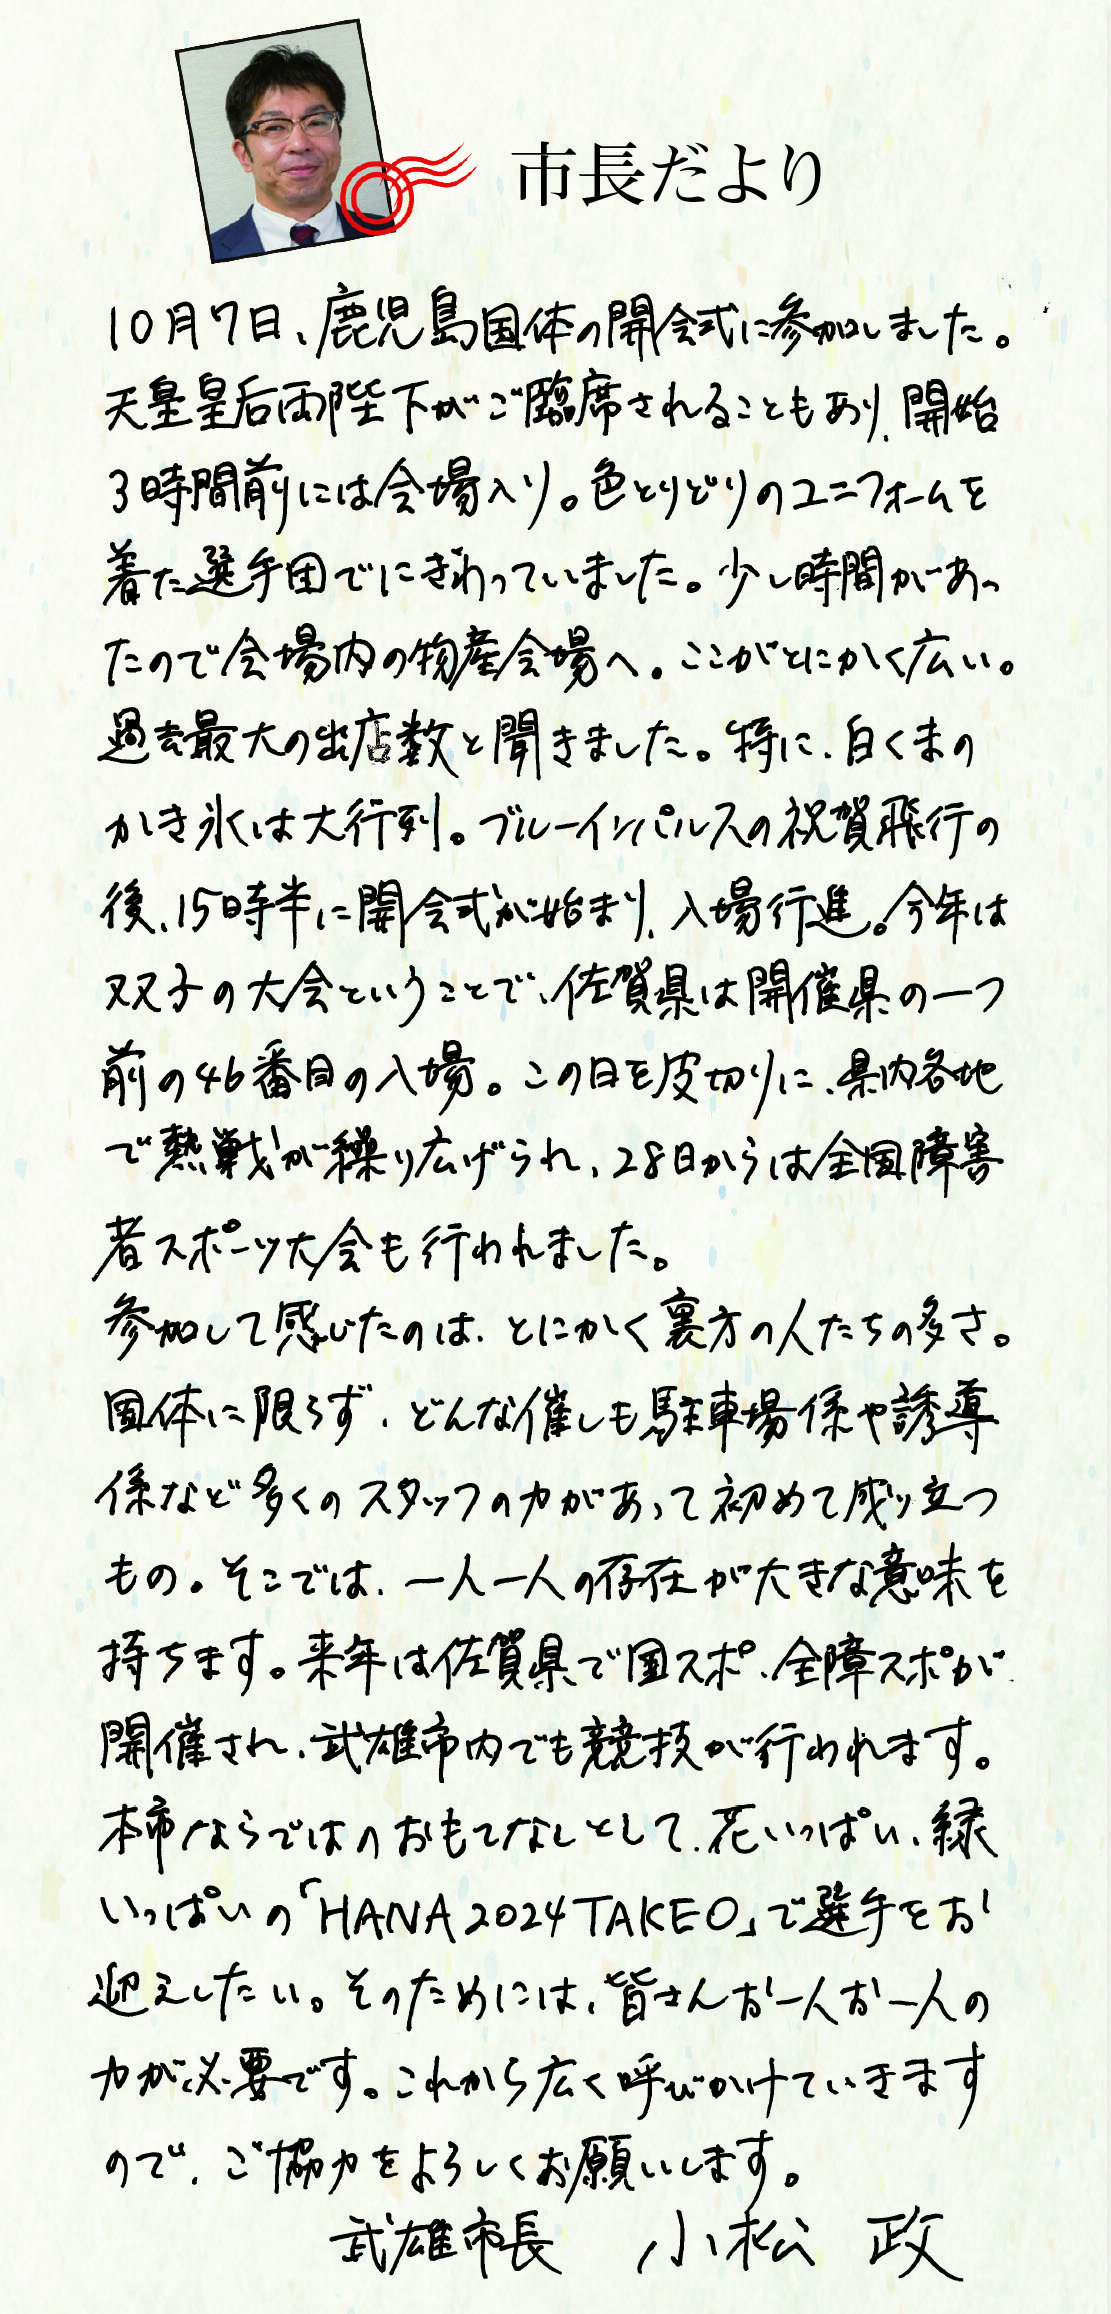 市長だより
10月7日、鹿児島国体の開会式に参加しました。
天皇皇后両陛下がご臨席されることもあり、開始
3時間前には会場入り。色とりどりのユニフォームを
着た選手団でにぎわっていました。少し時間があっ
たので会場内の物産会場へ。ここがとにかく広い。
過去最大の出店数と聞きました。特に、白くまの
かき氷は大行列。ブルーインパルスの祝賀飛行の
後、15時半に開会式が始まり、入場行進。今年は
双子の大会ということで、佐賀県は開催県の一つ
前の46番目の入場。この日を皮切りに、県内各地
で熱戦が繰り広げられ、28日からは全国障害
者スポーツ大会も行われました。
参加して感じたのは、とにかく裏方の人たちの多さ。
国体に限らず、どんな催しも駐車場係や誘導
係など多くのスタッフの力があって初めて成り立つ
もの。そこでは、一人一人の存在が大きな意味を
持ちます。来年は佐賀県で国スポ、全障スポが
開催され、武雄市内でも競技が行われます。
本市ならではのおもてなしとして、花いっぱい、緑
いっぱいの「HANA2024TAKEO」で選手をお
迎えしたい。そのためには、皆さんお一人お一人の
力が必要です。これから広く呼びかけていきます
ので、ご協力をよろしくお願いします。
武雄市長 小松 政